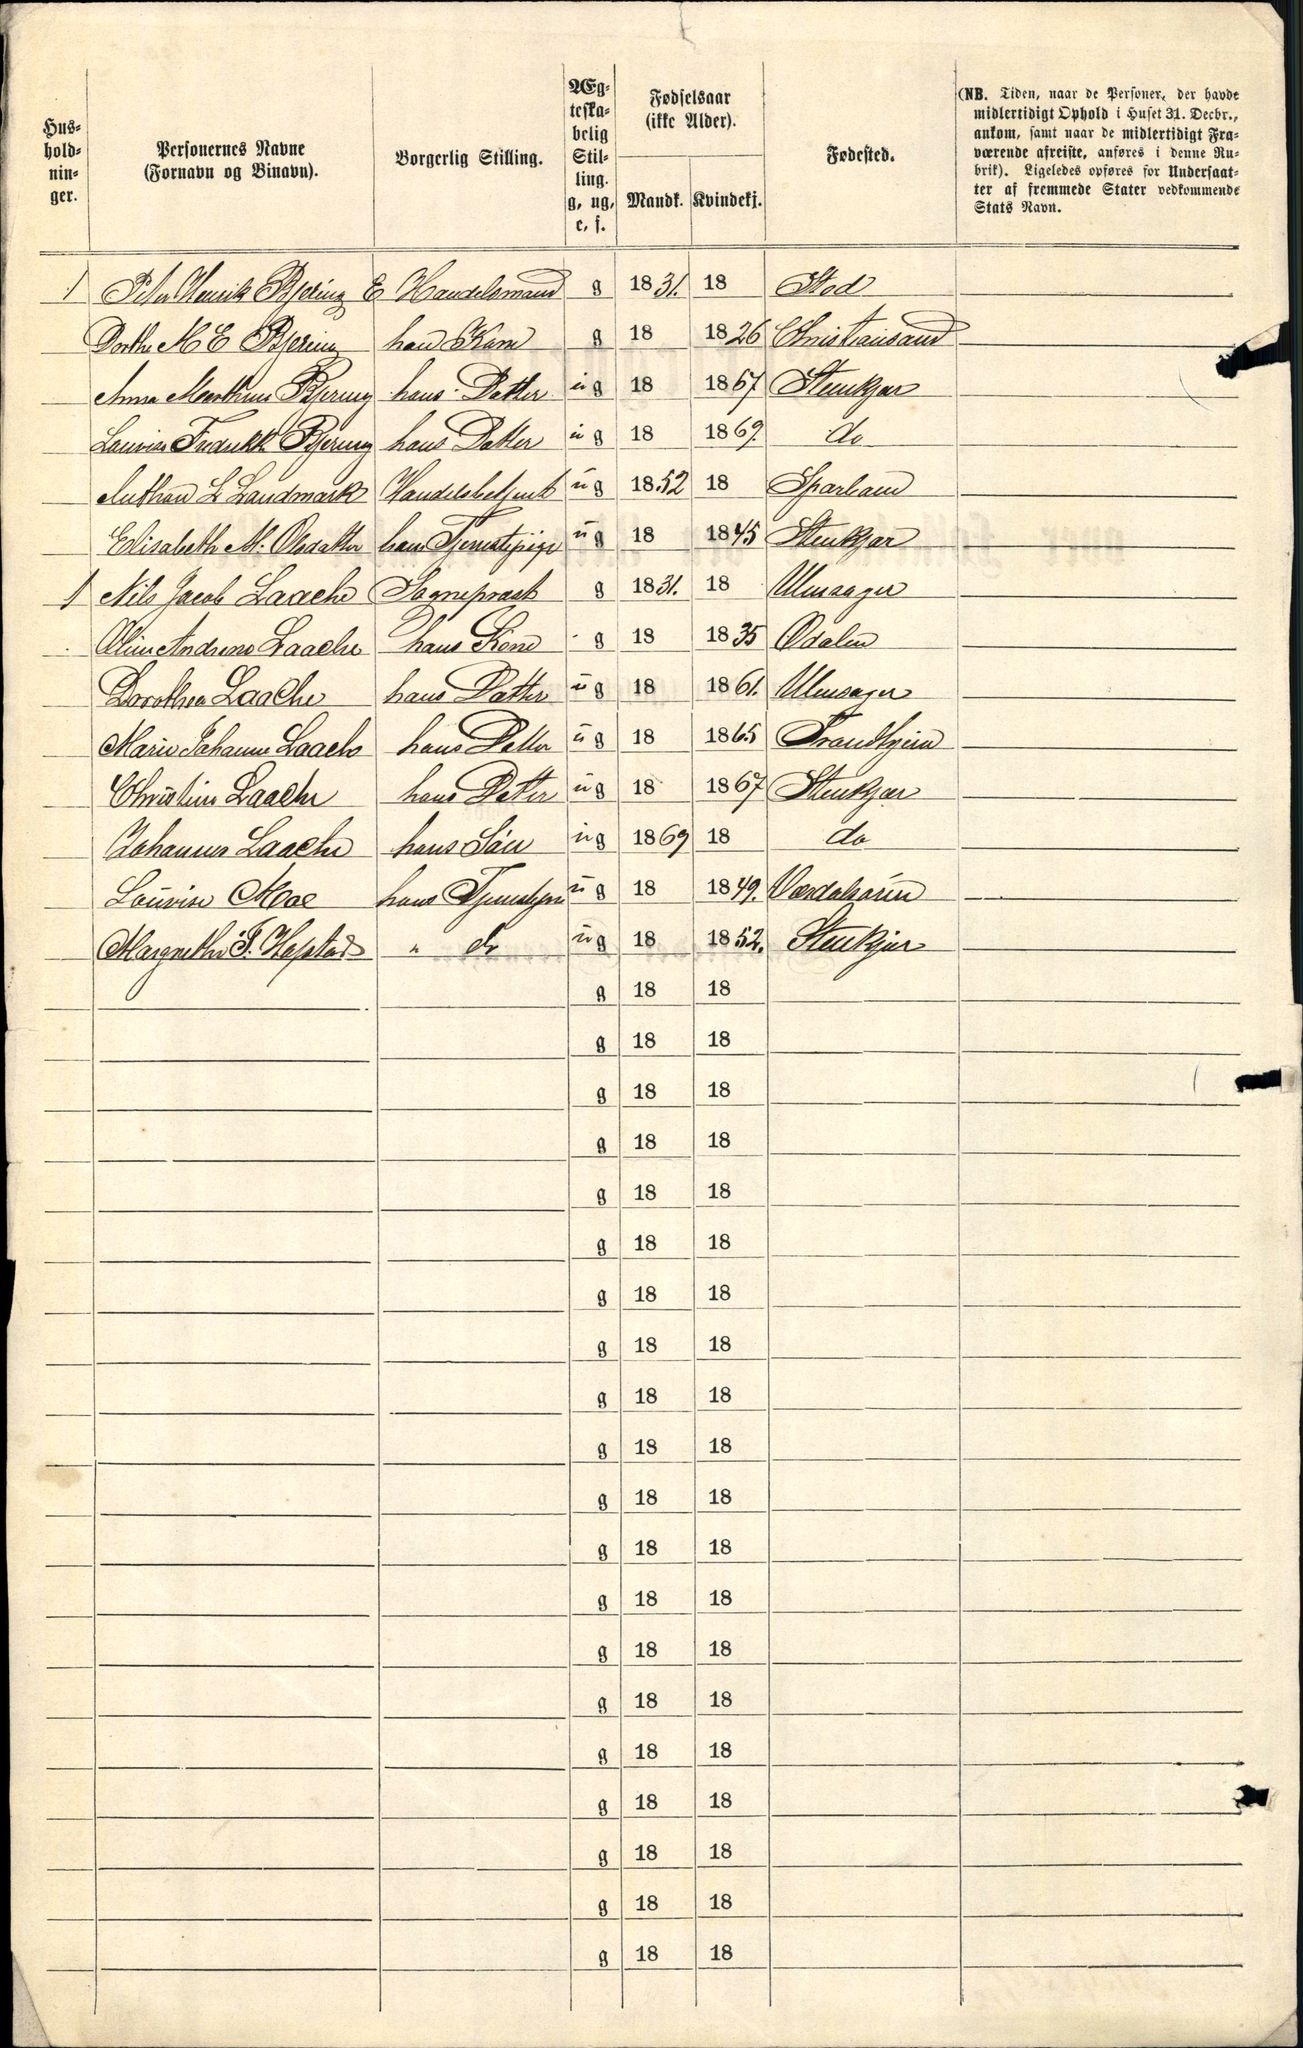 Hus-
hold-
nin-
ger.
Personernes Navne
(Fornavn og Binavn).
Borgerlig Stilling.
Æg-
teska-
belig
Stil-
ling.
g, ug,
e, f.
Fødselsaar
(ikke Alder).
Mandk.
Kvindekj.
Fødested.
(NB. Tiden, naar de Personer, der havde
midlertidigt Ophold i Huset 31. Decbr.,
ankom, samt naar de midlertidigt Fra-
værende afreiste, anføres i denne Ru-
brik). Ligeledes opføres for Undersaat-
ter af fremmede Stater vedkommende
Stats Navn.
1 Peter Henrik Bjering E Handelsmand g 1831. 18 Stod
Dorthe M E Bjering hans Kone g 18 1826 Christiansand
Anna Bjering hans Datter ug 18 1867 Stenkjær
Lovise Bjering hans Datter ug 18 1869. do
L Landmark Handelsbetjent ug 1852 18 Sparbuen
Elisabeth M. Olsdatter hans Tjenestepige ug 18 1845 Stenkjær
1 Nils Jacob Laache Sogneprest g 1831. 18 Ulensager
Oline Andrene Laache hans Kone g 18 1835 Odalen
Dorothea Laache hans Datter ug 18 1861. Ulensager
Marie Johanne Laache hans Datter ug 18 1865 Trondhjem
Christine Laache hans Datter ug 18 1867 Stenkjær
Johannes Laache hans Sön ug 1869 18 do
Louvise Moe hans ug 18 1849. Værdalsören
Margrethe Hapstad " do ug 18 1852. Stenkjær
g 18 18
g 18 18
g 18 18
g 18 18
g 18 18
g 18 18
g 18 18
g 18 18
g 18 18
g 18 18
g 18 18
g 18 18
g 18 18
g 18 18
g 18 18
g 18 18
g 18 18
g 18 18
g 18 18
g 18 18